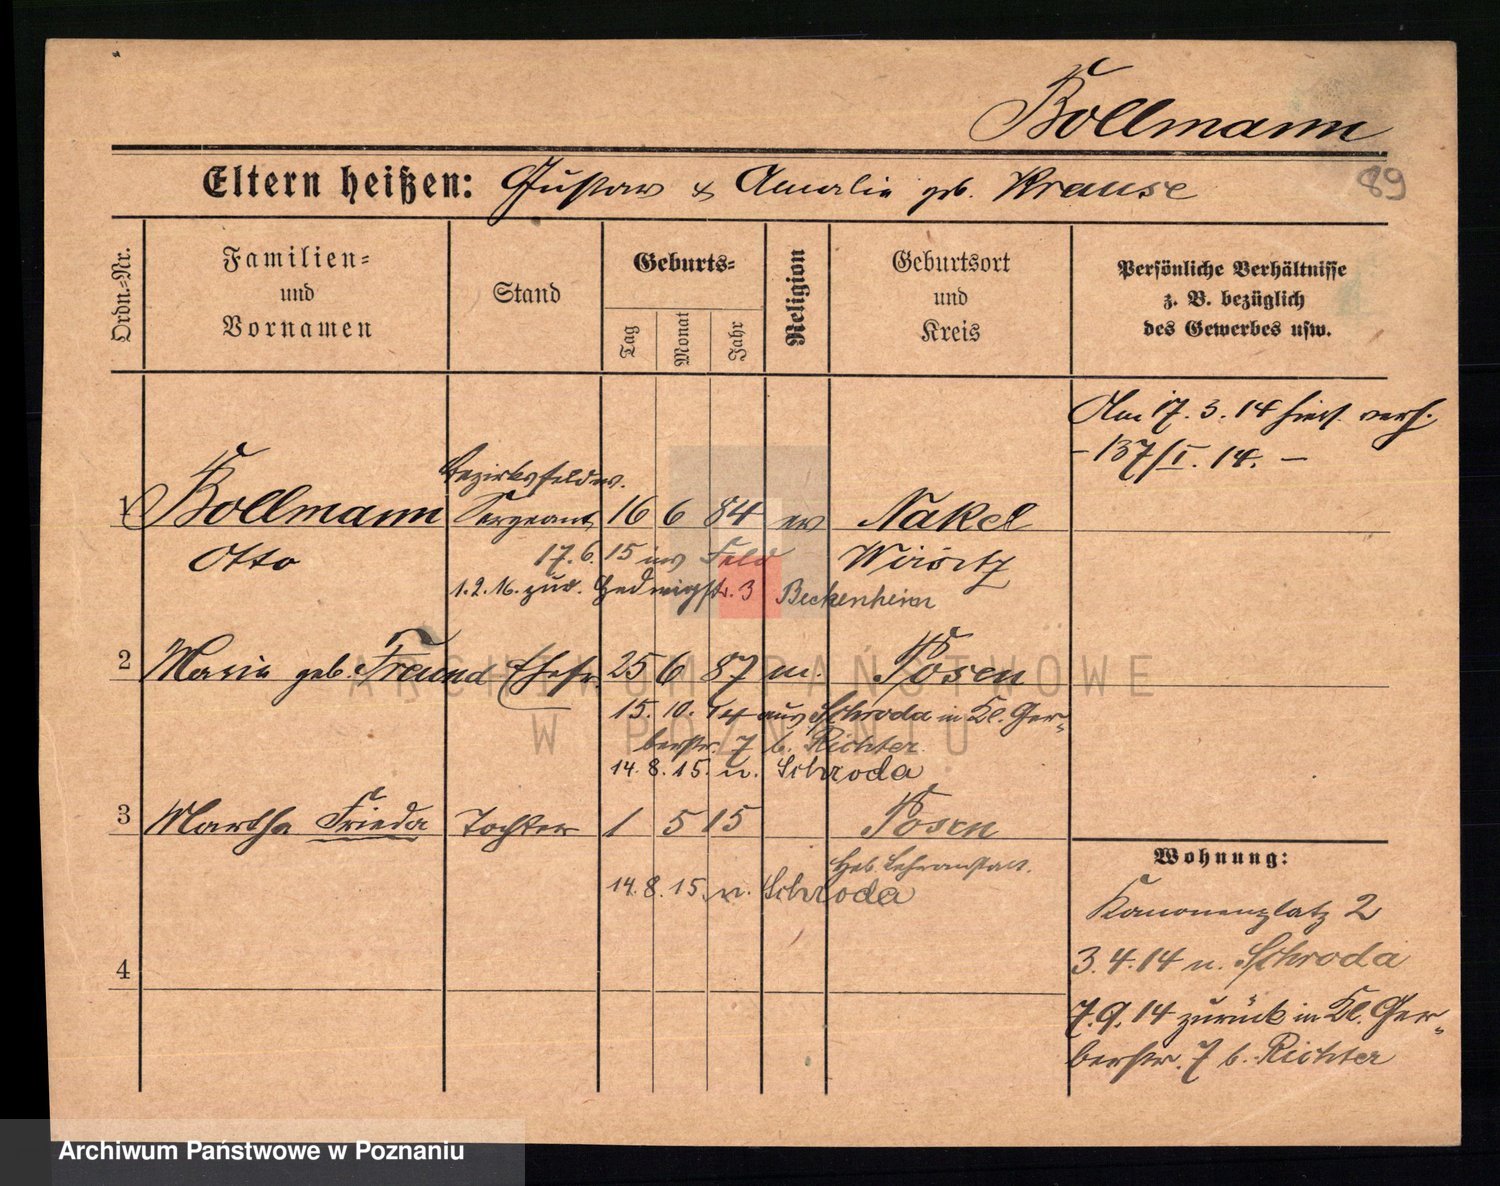 Bollmann
Eltern heißen: Gustav & Amalie geb. Krause
89
Ordn.=Nr.
Familien=
und
Vornamen
Stand
Geburts=
Tag
Monat
Jahr
Religion
Geburtsort
und
Kreis
Persönliche Verhältnisse
z. B. bezüglich
des Gewerbes usw.
Am 17. 3. 14 hier verh.
- 137/I. 14. -
Bezirksfeldw.
1 Bollmann Sergeant 16 6 84 ev Nakel
Otto 17. 6. 15 ins Feld Wirsitz
1. 2. 16. zur. Hedwigstr. 3 Beckenheim
2 Marie geb. Freund Ehefr. 25 6 87 m. Posen
15. 10. 14 aus Schroda in Kl. Ger-
berstr. 7 b. Richter
14. 8. 15. n. Schroda
3 Martha Frieda Tochter 1 5 15 Posen
Heb. Lehranstalt.
14. 8. 15. n. Schroda
4
Wohnung:
Kanonenplatz 2
3. 4. 14 n. Schroda
7. 9. 14 zurück in Kl. Ger-
berstr. 7 b. Richter
ARCHIWUM PAŃSTWOWE
W POZNANIU
Archiwum Państwowe w Poznaniu